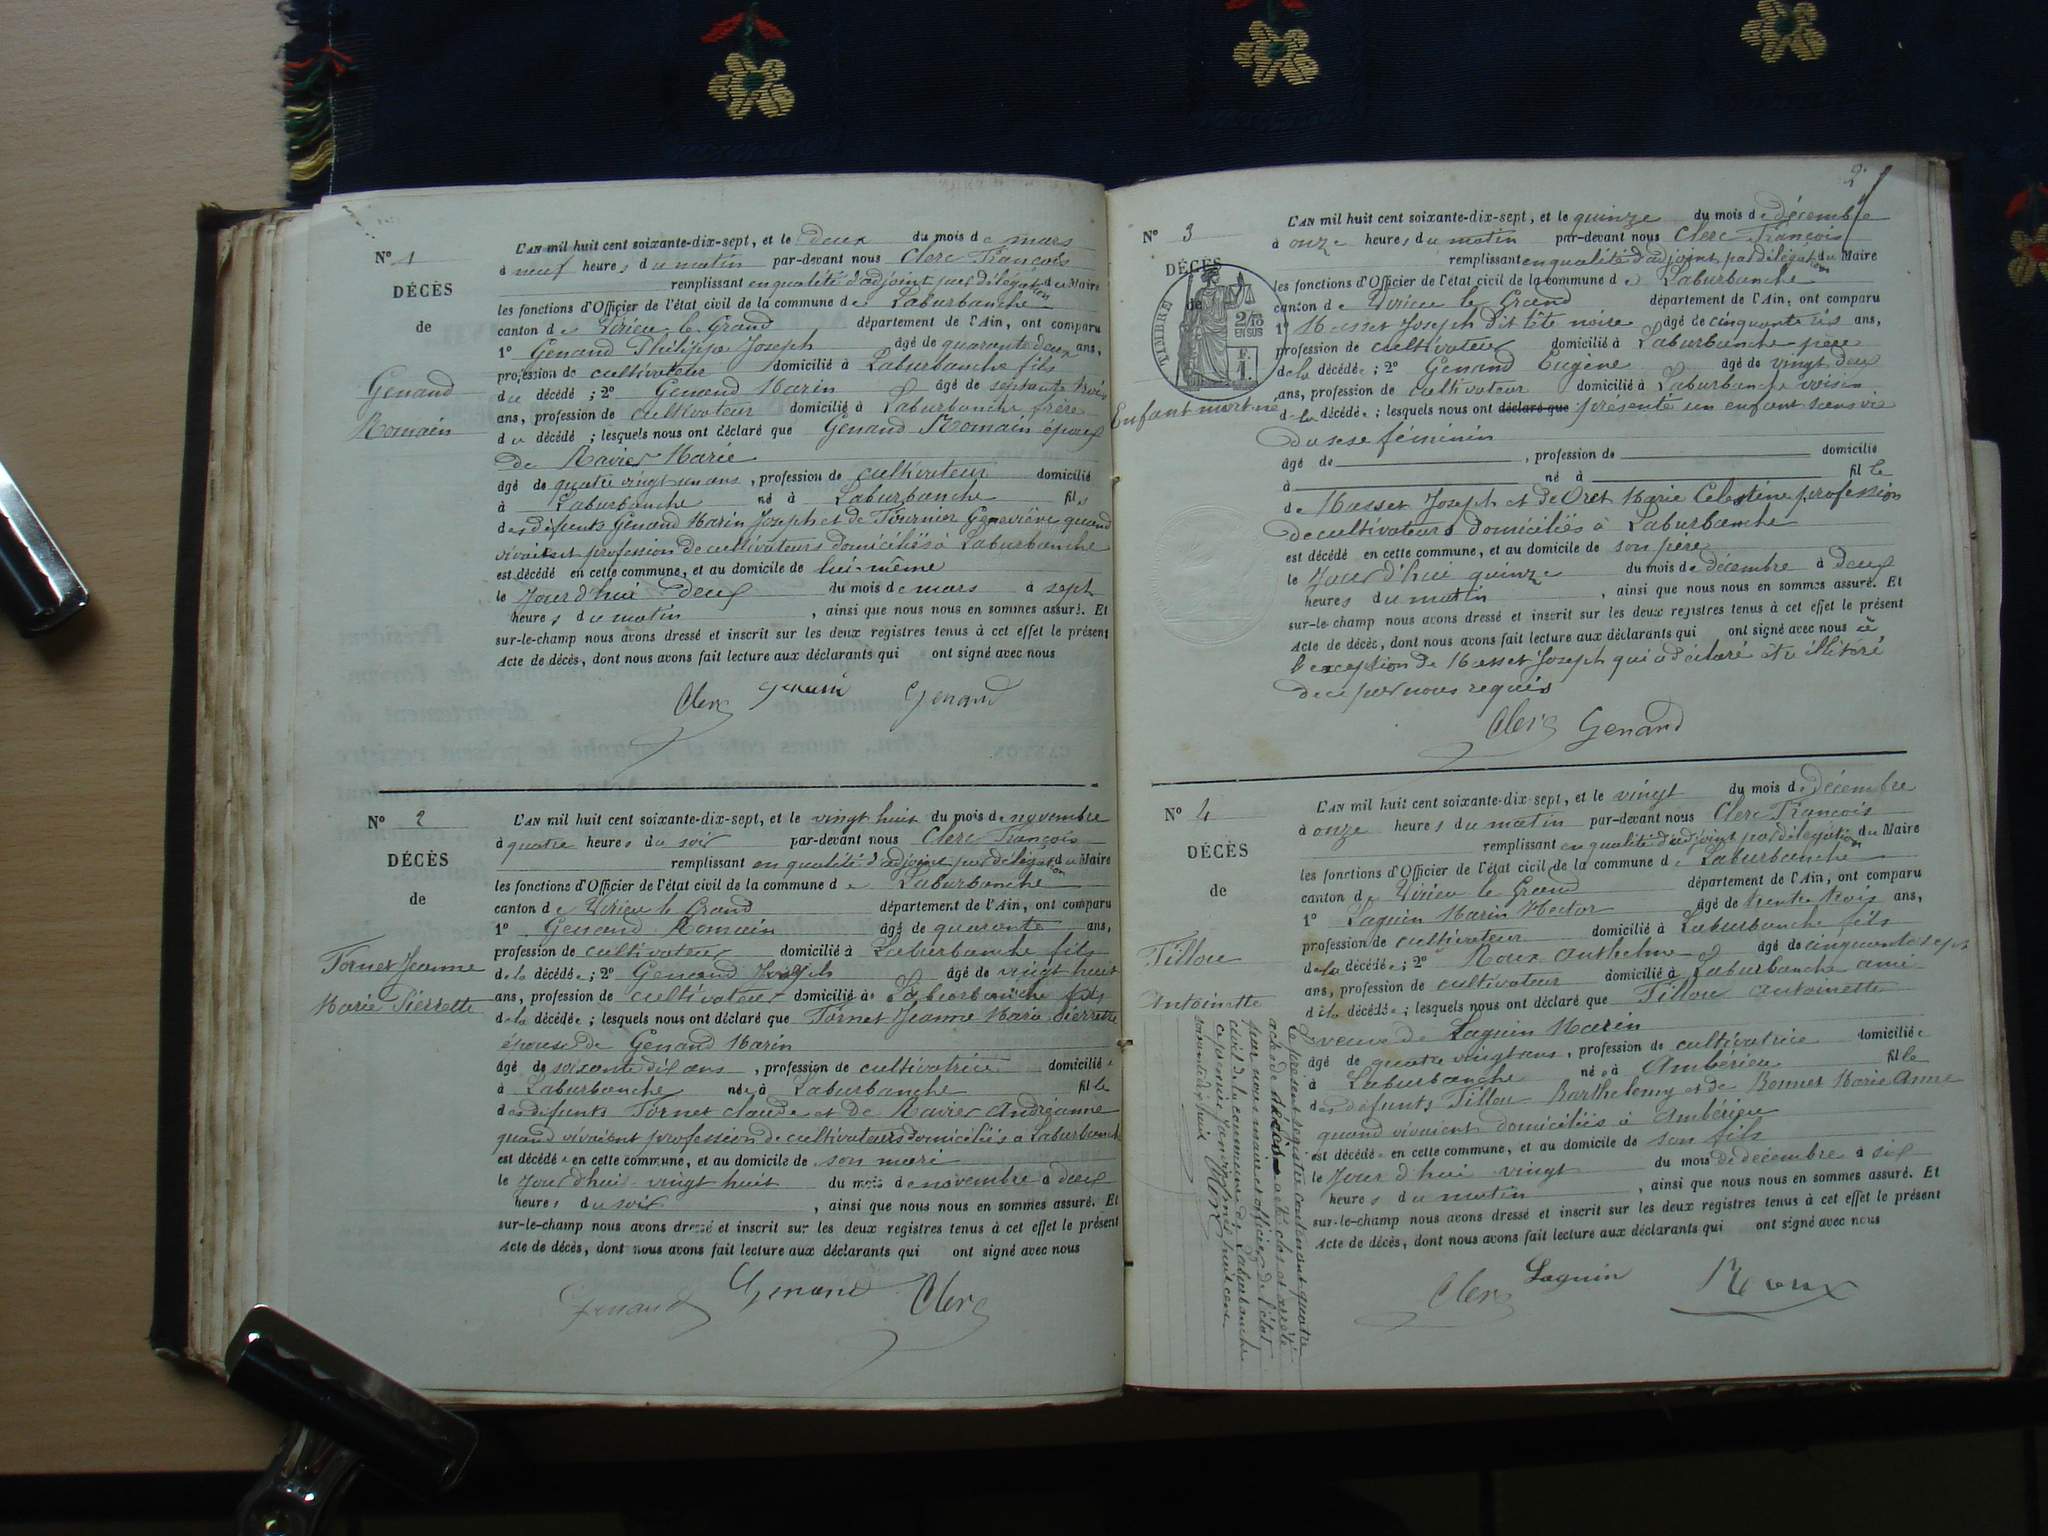 N° 1
DÉCÈS
de
Genand
Romain
L'AN mil huit cent soixante-dix-sept, et le deux du mois de mars
à neuf heures du matin par-devant nous Clerc François
remplissant en qualité d'adjoint par délégation du Maire
les fonctions d'Officier de l'état civil de la commune de Laburbanche
canton de Virieu le Grand département de l'Ain, ont comparu
1° Genand Philippe Joseph âgé de quarante deux ans,
profession de cultivateur domicilié à Laburbanche fils
du décédé ; 2° Genand Marin âgé de septante trois
ans, profession de cultivateur domicilié à Laburbanche frère
du décédé ; lesquels nous ont déclaré que Genand Romain époux
de Ravier Marie
âgé de quatre vingt un ans, profession de cultivateur domicilié
à Laburbanche né à Laburbanche fils
des défunts Genand Marin Joseph et de Fournier Geneviève quand
vivaient profession de cultivateurs domiciliés à Laburbanche
est décédé en cette commune, et au domicile de lui-même
le Jour d'hui deux du mois de mars à sept
heures du matin , ainsi que nous nous en sommes assuré. Et
sur-le-champ nous avons dressé et inscrit sur les deux registres tenus à cet effet le présent
Acte de décès, dont nous avons fait lecture aux déclarants qui ont signé avec nous
Clerc Genand Genand
N° 2
DÉCÈS
de
Tornet Jeanne
Marie Pierrette
L'AN mil huit cent soixante-dix-sept, et le vingt huit du mois de novembre
à quatre heures du soir par-devant nous Clerc François
remplissant en qualité d'adjoint par délégation du Maire
les fonctions d'Officier de l'état civil de la commune de Laburbanche
canton de Virieu le Grand département de l'Ain, ont comparu
1° Genand Romain âgé de quarante ans,
profession de cultivateur domicilié à Laburbanche fils
de la décédée ; 2° Genand Joseph âgé de vingt huit
ans, profession de cultivateur domicilié à Laburbanche fils
de la décédée ; lesquels nous ont déclaré que Tornet Jeanne Marie Pierrette
épouse de Genand Marin
âgé de soixante dix ans , profession de cultivatrice domiciliée
à Laburbanche née à Laburbanche fille
des défunts Tornet Claude et de Ravier Andréanne
quand vivaient profession de cultivateurs domiciliés à Laburbanche
est décédée en cette commune, et au domicile de son mari
le Jour d'hui vingt huit du mois de novembre à deux
heures du soir , ainsi que nous nous en sommes assuré. Et
sur-le-champ nous avons dressé et inscrit sur les deux registres tenus à cet effet le présent
Acte de décès, dont nous avons fait lecture aux déclarants qui ont signé avec nous
Genand Genand Clerc
2
N° 3
DÉCÈS
de
TIMBRE
2/10
EN SUS
Enfant mort né
L'AN mil huit cent soixante-dix-sept, et le quinze du mois de décembre
à onze heures du matin par-devant nous Clerc François
remplissant en qualité d'adjoint par délégation du Maire
les fonctions d'Officier de l'état civil de la commune de Laburbanche
canton de Virieu le Grand département de l'Ain, ont comparu
1° Masset Joseph dit tête noire âgé de cinquante six ans,
profession de cultivateur domicilié à Laburbanche père
de la décédée ; 2° Genand Eugène âgé de vingt deux
ans, profession de cultivateur domicilié à Laburbanche voisin
de la décédée ; lesquels nous ont déclaré que présenté un enfant sans vie
du sexe féminin
âgé de , profession de domicilié
à né à fille
de Masset Joseph et de Oret Marie Célestine profession
de cultivateurs domiciliés à Laburbanche
est décédé en cette commune, et au domicile de son père
le Jour d'hui quinze du mois de décembre à deux
heures du matin , ainsi que nous nous en sommes assuré. Et
sur-le-champ nous avons dressé et inscrit sur les deux registres tenus à cet effet le présent
Acte de décès, dont nous avons fait lecture aux déclarants qui ont signé avec nous à
l'exception de Masset Joseph qui a déclaré être illitéré
de ce par nous requis
Clerc Genand
N° 4
DÉCÈS
de
Tillou
Antoinette
L'AN mil huit cent soixante-dix-sept, et le vingt du mois de décembre
à onze heures du matin par-devant nous Clerc François
remplissant en qualité d'adjoint par délégation du Maire
les fonctions d'Officier de l'état civil de la commune de Laburbanche
canton de Virieu le Grand département de l'Ain, ont comparu
1° Laguin Marin Hector âgé de trente trois ans,
profession de cultivateur domicilié à Laburbanche fils
de la décédée ; 2° Roux Anthelme âgé de cinquante sept
ans, profession de cultivateur domicilié à Laburbanche ami
de la décédée ; lesquels nous ont déclaré que Tillou Antoinette
veuve de Laguin Marin
âgé de quatre vingt ans, profession de cultivatrice domiciliée
à Laburbanche née à Ambérieu fille
des défunts Tillou Barthelemy et de Bonnet Marie Anne
quand vivaient domiciliés à Ambérieu
est décédée en cette commune, et au domicile de son fils
le Jour d'hui vingt du mois de décembre à six
heures du matin , ainsi que nous nous en sommes assuré. Et
sur-le-champ nous avons dressé et inscrit sur les deux registres tenus à cet effet le présent
Acte de décès, dont nous avons fait lecture aux déclarants qui ont signé avec nous
Clerc Laguin Roux
Le présent registre contenant quatre
acte de décès a été clos et arrêté
par nous maire et officier de l'état
civil de la commune de Laburbanche
ce premier Janvier mil huit cent
soixante dix huit